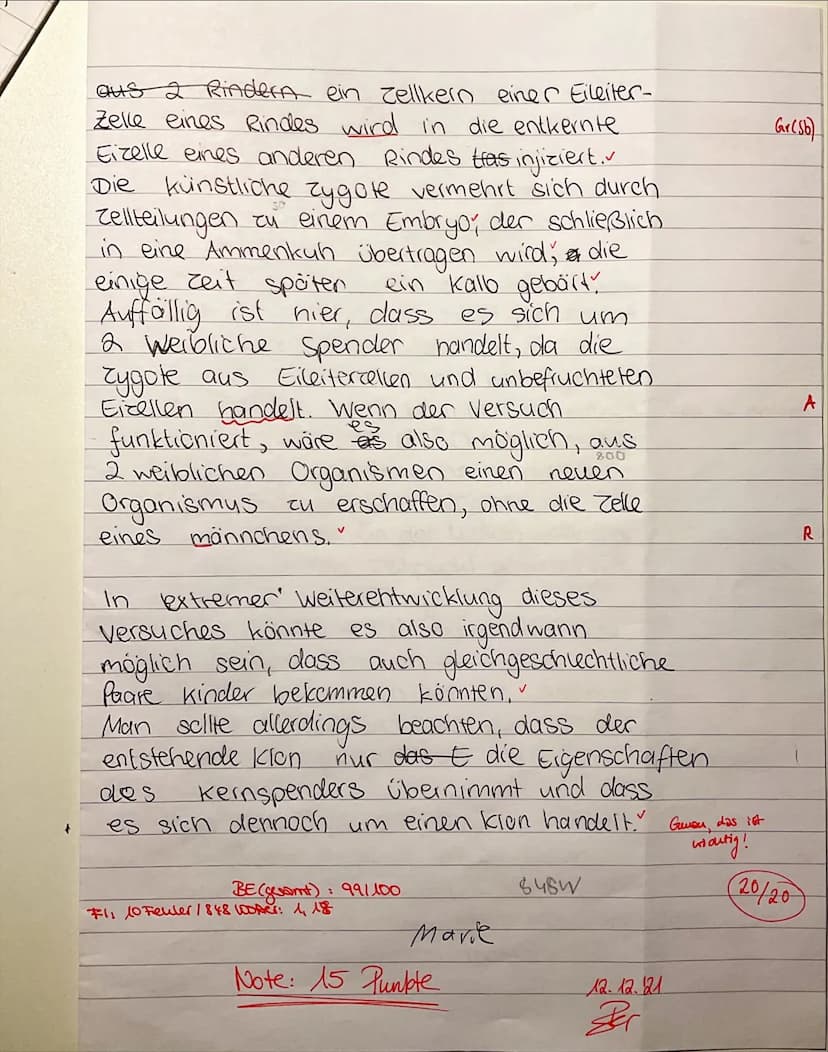 aus 2 Rindern ein Zellkern einer Eileiter-
zelle eines Rindes wird in die entkernte Gr(Sb)
Eizelle eines anderen Rindes injiziert. ✓
Die künstliche Zygote vermehrt sich durch
Zellteilungen zu einem Embryo, ✓ der schließlich
in eine Ammenkuh übertragen wird, ✓ die
einige Zeit später ein Kalb gebärt. ✓
Auffällig ist hier, dass es sich um
2 weibliche Spender handelt, da die
Zygote aus Eileiterzellen und unbefruchteten
Eizellen handelt. Wenn der Versuch A
funktioniert, wäre es also möglich, aus
800
2 weiblichen Organismen einen neuen
Organismus zu erschaffen, ohne die Zelle
eines männchens. ✓ R
In 'extremer' Weiterentwicklung dieses
Versuches könnte es also irgendwann
möglich sein, dass auch gleichgeschlechtliche
Paare Kinder bekommen könnten. ✓
Man sollte allerdings beachten, dass der
entstehende Klon nur das E die Eigenschaften
des Kernspenders übernimmt und dass
es sich dennoch um einen Klon handelt. ✓ Genau, das ist
wichtig!
BE(gesamt): 99/100 848W 20/20
FI: 10 Fehler / 848 Wörter: 1,18
Marie
Note: 15 Punkte 12.12.21